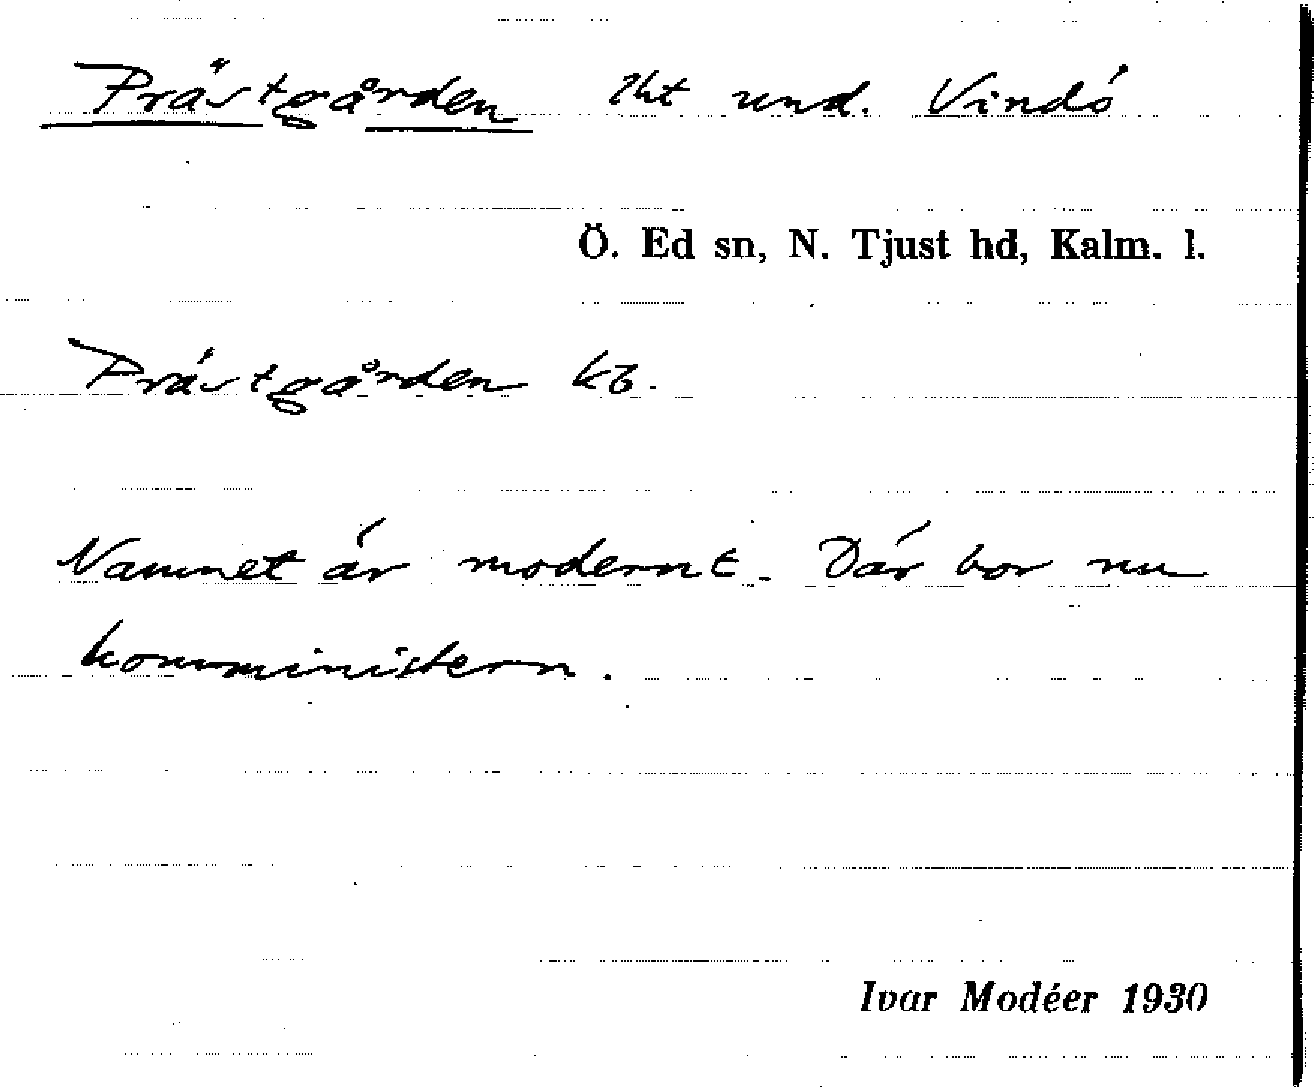 Prästgården lht und. Vindö
Ö. Ed sn, N. Tjust hd, Kalm. l.
Prästgården kb.
Namnet är modernt. Där bor nu
komministern.
Ivar Modéer 1930